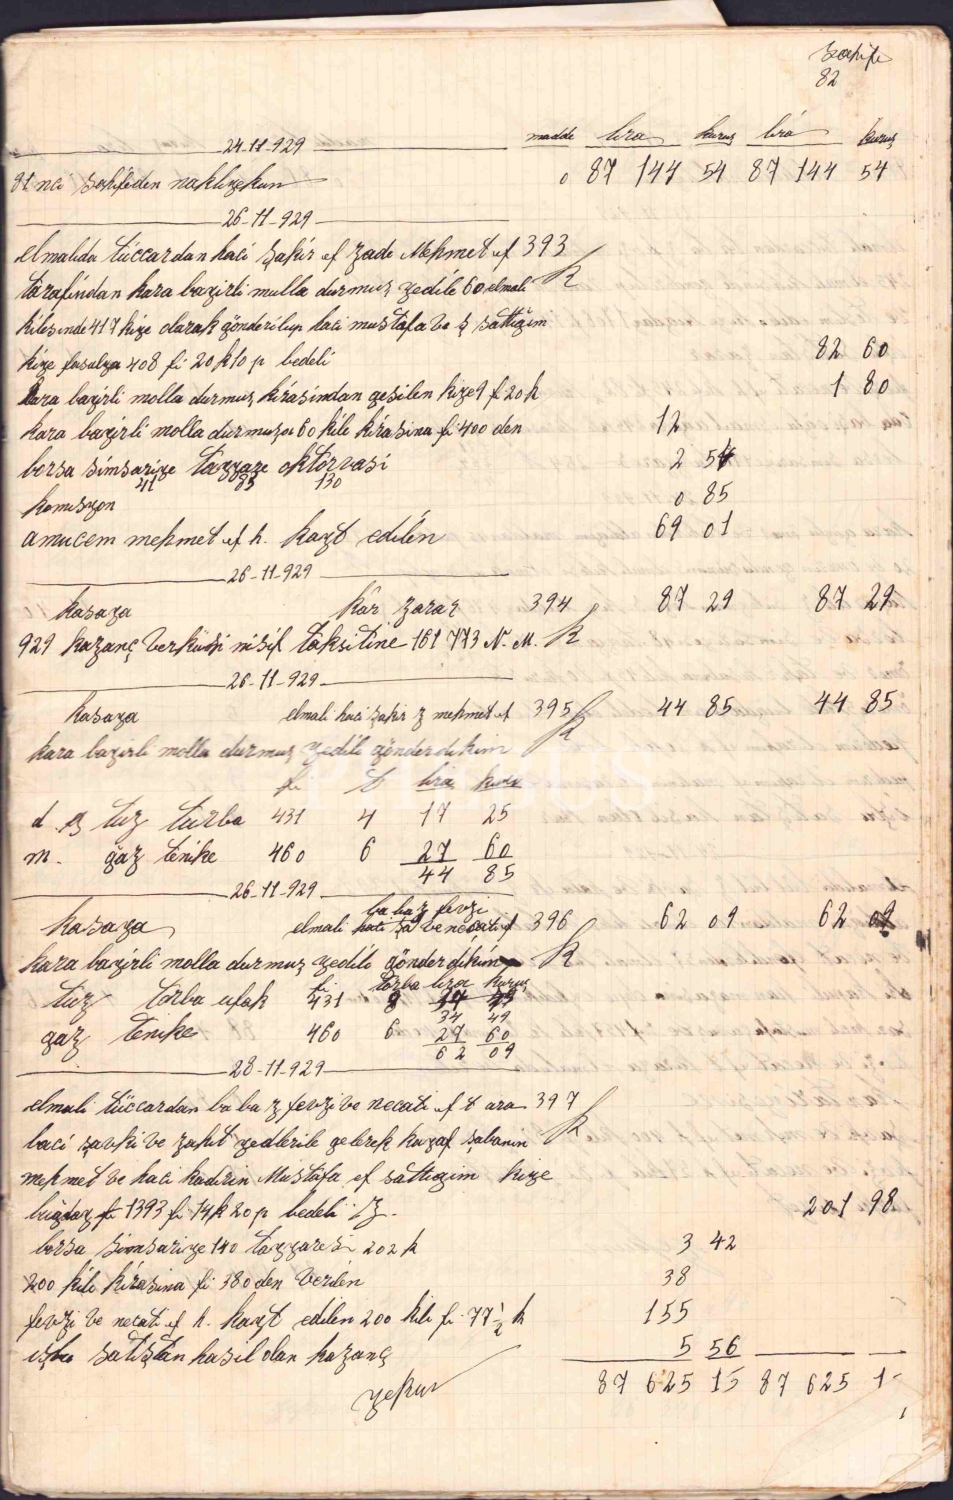 Sahife
82
madde lira kuruş lira kuruş
24-11-929
81 nci sahifeden nakliyekun 0 87 144 54 87 144 54
26-11-929
elmalida tüccardan haci şakir ef zade Mehmet ef 393
tarafindan kara bayirli mulla durmuş yedile 60 elmali
kilesinde 417 kiye olarak gönderilup haci mustafa ve ş sattigim
kiye fasulya 408 fi 20 k 10 p bedeli 82 60
kara bayirli molla durmuş kirasindan gesilen kiye 9 fi 20 k 1 80
kara bayirli molla durmuşa 60 kile kirasina fi 400 den 12
borsa simsariye tayyare oktorvasi 2 54
41 83 130
komusyon 0 85
amucem mehmet ef h. kayt edilen 69 01
26-11-929
kasaya kar zarar 394 87 29 87 29
929 kazanç verkusi nisif taksitine 161 773 N. M.
26-11-929
kasaya elmali haci şakir z mehmet ef 395 44 85 44 85
kara bayirli molla durmuş yedile gönderdikim
fi t lira kuruş
d. tuz turba 431 4 17 25
m. gaz tenike 460 6 27 60
44 85
26-11-929
baba z fevzi
kasaya elmali ve necati ef 396 62 09 62 09
kara bayirli molla durmuş yedile gönderdikim
fi torba lira kuruş
tuz torba ufak 431 34 49
gaz tenike 460 6 27 60
62 09
28-11-929
elmali tüccardan baba z fevzi ve necati ef t ara 397
baci şavki ve zahit yedlerile gelerek kazaf şabanin
mehmet ve haci kadirin Mustafa ef sattigim kiye
bugday fi 1393 fi 14 k 20 p bedeli 201 98
borsa simsariye 140 tayyaresi 202 k 3 42
200 kile kirasina fi 380 den verilen 38
fevzi ve necati ef h. kayt edilen 200 kile fi 77 1/2 k 155
işbu satiştan hasil olan kazanç 5 56
yekun 87 625 15 87 625 1